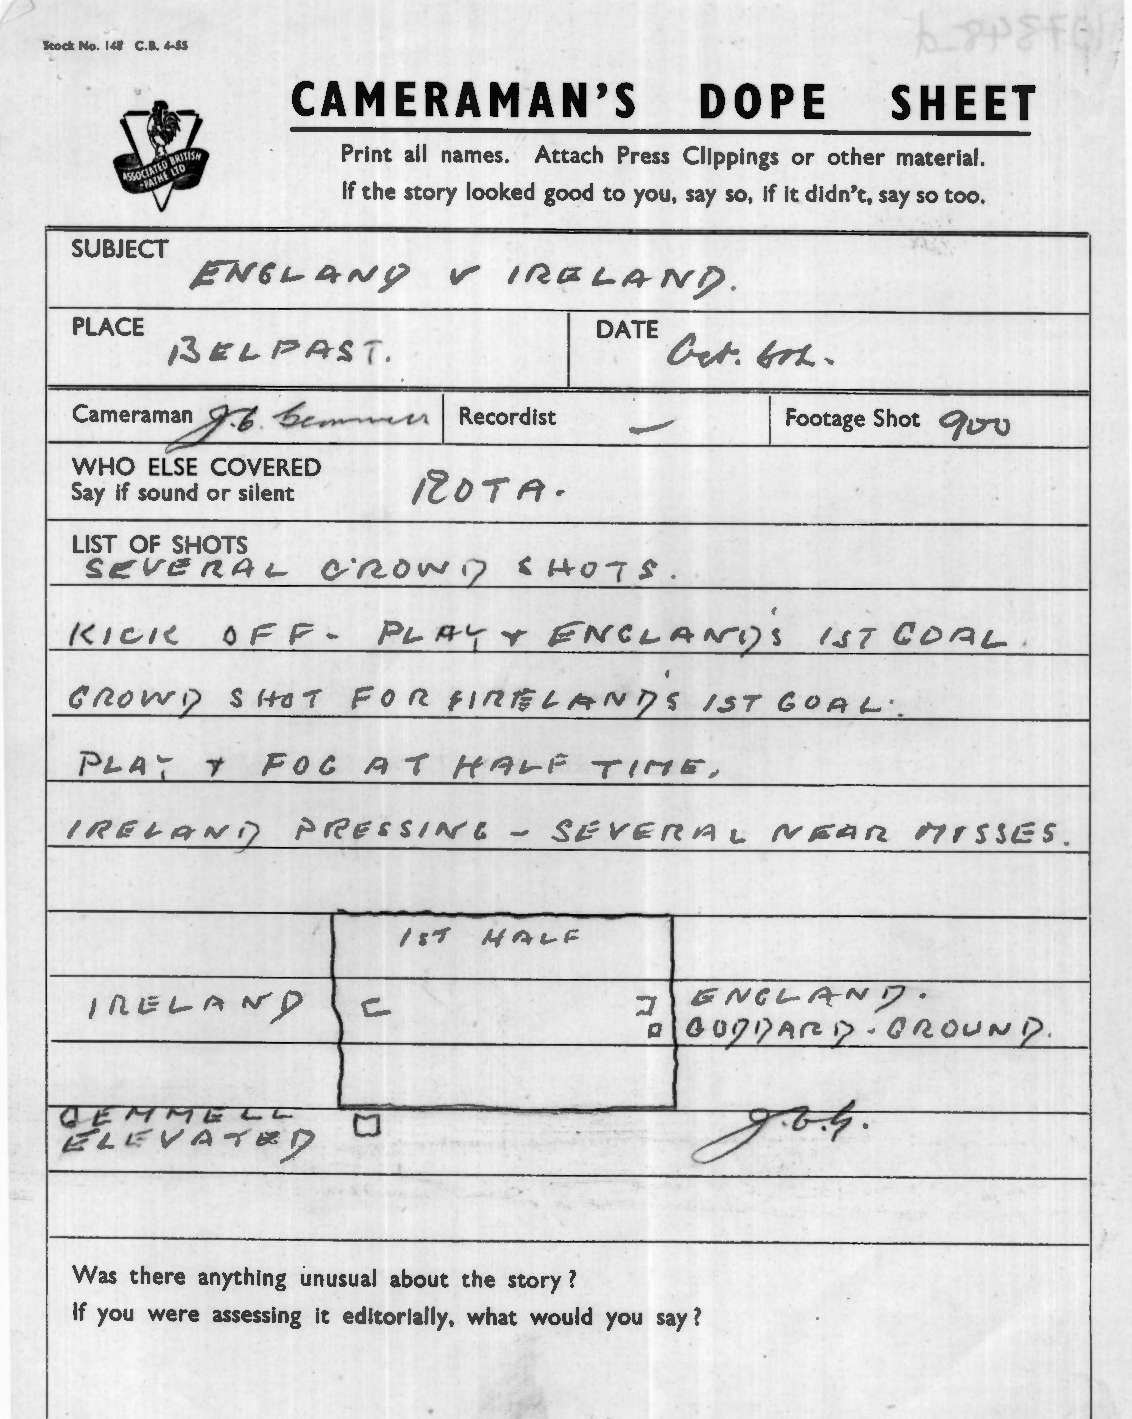 Stock No. 148 C.B. 4-55
CAMERAMAN'S DOPE SHEET
ASSOCIATED BRITISH
- PATHE LTD
Print all names. Attach Press Clippings or other material.
If the story looked good to you, say so, if it didn't, say so too.
SUBJECT
ENGLAND v IRELAND.
PLACE
BELFAST.
DATE
Oct. 6th.
Cameraman J.G. Gemmell
Recordist —
Footage Shot 900
WHO ELSE COVERED
Say if sound or silent
ROTA.
LIST OF SHOTS
SEVERAL CROWD SHOTS.
KICK OFF - PLAY + ENGLAND'S 1ST GOAL.
CROWD SHOT FOR IRELAND'S 1ST GOAL.
PLAY + FOG AT HALF TIME.
IRELAND PRESSING - SEVERAL NEAR MISSES.
1ST HALF
IRELAND
ENGLAND.
GODDARD - GROUND.
GEMMELL
ELEVATED
J.G.G.
Was there anything unusual about the story?
If you were assessing it editorially, what would you say?